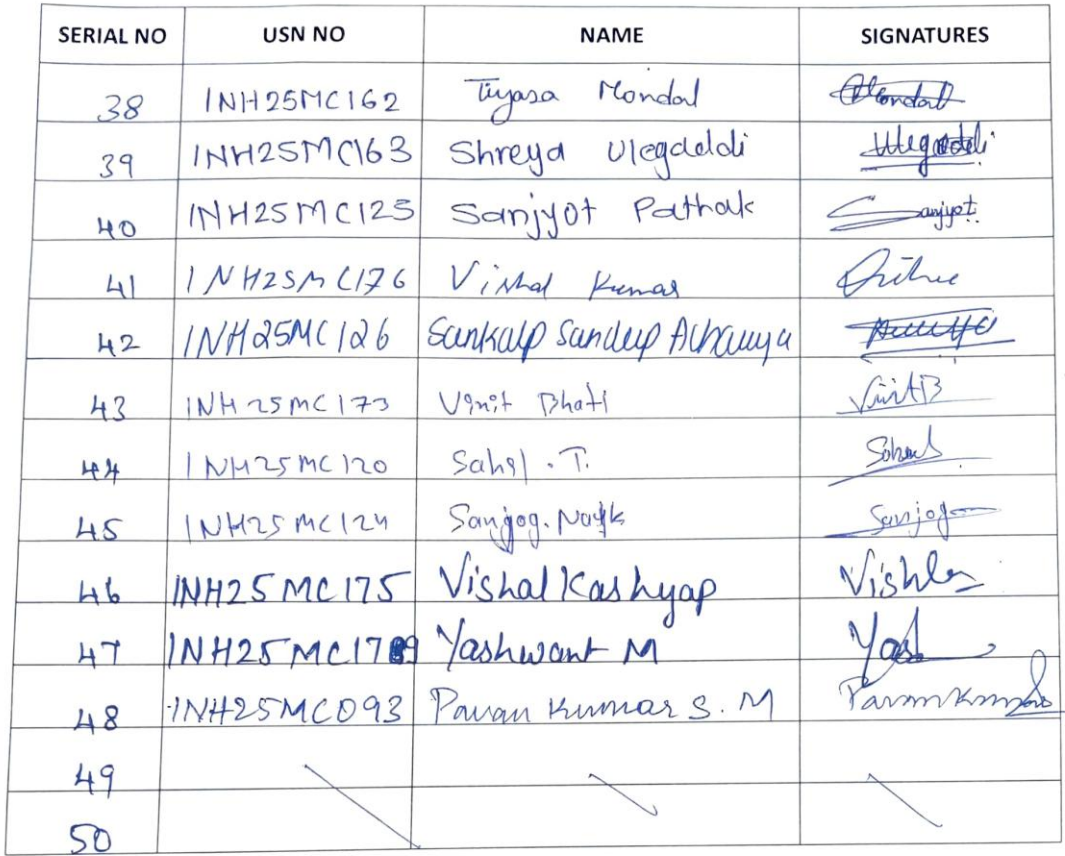 SERIAL NO USN NO NAME SIGNATURES
38 1NH25MC162 Tiyasa Mondal Mondal
39 1NH25MC163 Shreya Ulegaddi Ulegaddi
40 1NH25MC125 Sanjyot Pathak Sanjyot
41 1NH25MC176 Vishal Kumar
42 1NH25MC126 Sankalp Sandeep Acharya
43 1NH25MC173 Vinit Bhati VinitB
44 1NH25MC120 Sahil . T.
45 1NH25MC124 Sanjog. Nayk Sanjog
46 1NH25MC175 Vishal Kashyap
47 1NH25MC179 Yashwant M Yash
48 1NH25MC093 Pavan Kumar S. M
49
50